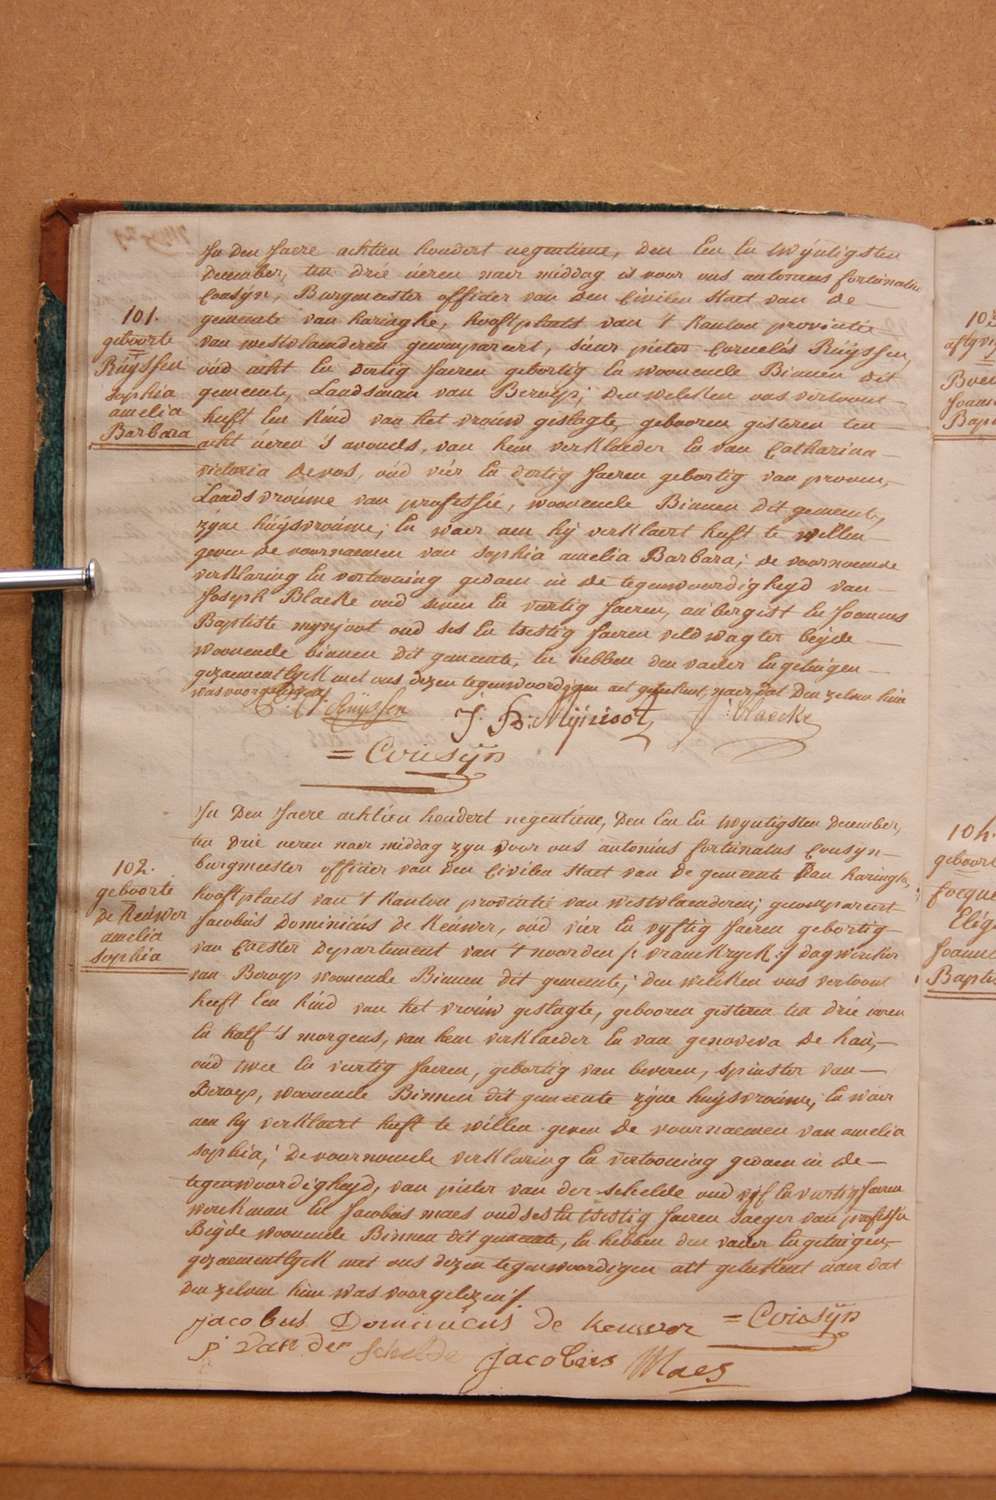 In Den Jaere achtien hondert negentiene, den Een En twyntigsten
December, ten drie ueren naer middag is voor ons antonius fortunatus
Cousÿn, Burgmeester officier van den Civilen Staet van de
gemeente van haringhe, hooftplaets van 't kanton provintie
van westvlaenderen gecompareert, sieur pieter Cornelis Rüyssen,
oüd acht En dertig Jaeren gebortig En woonende Binnen dit
gemeente, Landsman van Beroep; den welken ons vertoont
heeft Een kind van het vrouw geslagte, gebooren gisteren ten
acht ueren 's avonds, van hem verklaeder En van Catharina
victoria Devos, oüd vier En dertig Jaeren gebortig van proven,
Landsvrouwe van professie, woonende Binnen dit gemeente,
zÿne hüÿsvroüwe; En waer aen hÿ verklaert heeft te willen
geven de voornaemen van sophia amelia Barbara; de voornoemde
verklaering En vertooning gedaen in de tegenwoordigheyd van
Joseph Blaeke oud seven En vertig Jaeren, aübergist En Joannes
Baptiste mynjoot oud ses En tsestig Jaeren veldwagter beÿde
woonende binnen dit gemeente, En hebben den vader En getuigen
gezaementlÿck met ons dezen tegenwoordigen act geteekent, naer dat den zelven hun
was voorgelezen
101.
geboorte
Rüyssen
sophia
amelia
Barbara
Rüyssen J: B: Mÿnioot J: Blaeke
= Cousÿn
In Den Jaere achtien hondert negentiene, Den Een En twyntigsten December,
ten drie ueren naer middag zyn voor ons antonius fortunatus Cousyn
burgmeester officier van den Civilen Staet van de gemeente van haringhe,
hooftplaets van 't kanton provintie van westvlaenderen; gecompareert
Jacobus Dominicus de keuwer, oüd vier En vyftig Jaeren gebortig
van Caester Departement van 't noorden /: vrankryck :/ dagwerker
van Beroep woonende Binnen dit gemeente; den welken ons vertoont
heeft Een kind van het vrouw geslagte, gebooren gisteren ten drie ueren
En half 's morgens, van hem verklaeder En van genoveva de hau,
oüd twee En vertig Jaeren, gebortig van beveren, spinster van
Beroep, woonende Binnen dit gemeente zÿne huÿsvroüwe; En waer
aen hÿ verklaert heeft te willen geven de voornaemen van amelia
sophia; De voornoemde verklaering En vertooning gedaen in de
tegenwoordigheyd, van pieter van der schelde oud vyf En vertig Jaeren
werckman En Jacobus maes oud ses En tsestig Jaeren saeger van professie
Beÿde woonende Binnen dit gemeente, En hebben den vader En getuigen,
gezaementlÿck met ons dezen tegenwoordigen act geteekent naer dat
den zelven hun was voorgelezen /.
102.
geboorte
De Keüwer
amelia
sophia
jacobus Dominicus de keuwer = Cousÿn
p van der schelde jacobus Maes
103
Joann
Bapt
104
geboort
Jacque
Elég
Joanne
Baptis